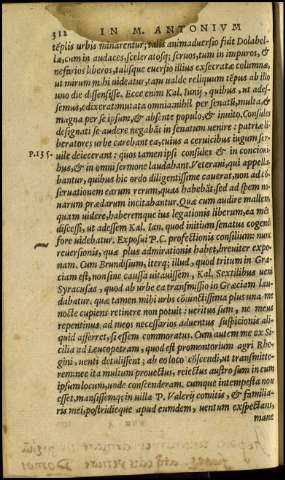 312 IN M. ANTONIVM
têplis urbis minarentur, talis animaduersio fuit Dolabel-
læ, cum in audaces, sceleratosq; seruos, tum in impuros, &
nefarios liberos, talisque euersio illius execratæ columnæ,
ut mirum mihi uideatur, tam ualde reliquum têpus ab illo
uno die dissensisse. Ecce enim Kal. Iunij, quibus, ut ades-
semus, edixerat, mutata omnia: nihil per senatũ, multa &
magna per se ipsum, & absente populo, & inuito. Consules
designati se audere negabãt in senatum uenire: patriæ li-
beratores urbe carebant ea, cuius a ceruicibus iugum ser-
P.135. uile deiecerant: quos tamen ipsi consules & in concioni-
bus, & in omni sermone laudabant. Veterani, qui appella-
bantur, quibus hic ordo diligentissime cauerat, non ad cõ-
seruationem earum rerum, quas habebãt, sed ad spem no-
uarum prædarum incitabantur. Quæ cum audire mallem,
quam uidere, haberemque ius legationis liberum, ea mẽte
discessi, ut adessem Kal. Ian. quod initium senatus cogendi
fore uidebatur. Exposui P.C. profectionis consilium: nunc
reuersionis, quæ plus admirationis habet, breuiter expo-
nam. Cum Brundisium, iterq; illud, quod tritum in Græ-
ciam est, non sine caussa uitauissem, Kal. Sextilibus ueni
Syracusas, quod ab urbe ea transmissio in Græciam lau-
dabatur. quæ tamen urbs mihi coniunctissima plus una me
nocte cupiens retinere non potuit: ueritus sum, ne meus
repentinus ad meos necessarios aduentus suspicionis ali-
quid afferret, si essem commoratus. Cum autem me ex Si-
cilia ad Leucopetram, quod est promontorium agri Rhe-
gini, uenti detulissent: ab eo loco conscendi, ut transmitte-
rem: nec ita multum prouectus, reiectus austro sum in eum
ipsum locum, unde conscenderam. cumque intempesta nox
esset, mansissemq; in uilla P. Valerij comitis, & familia-
ris mei, postridieque apud eundem, uentum expectans,
mane